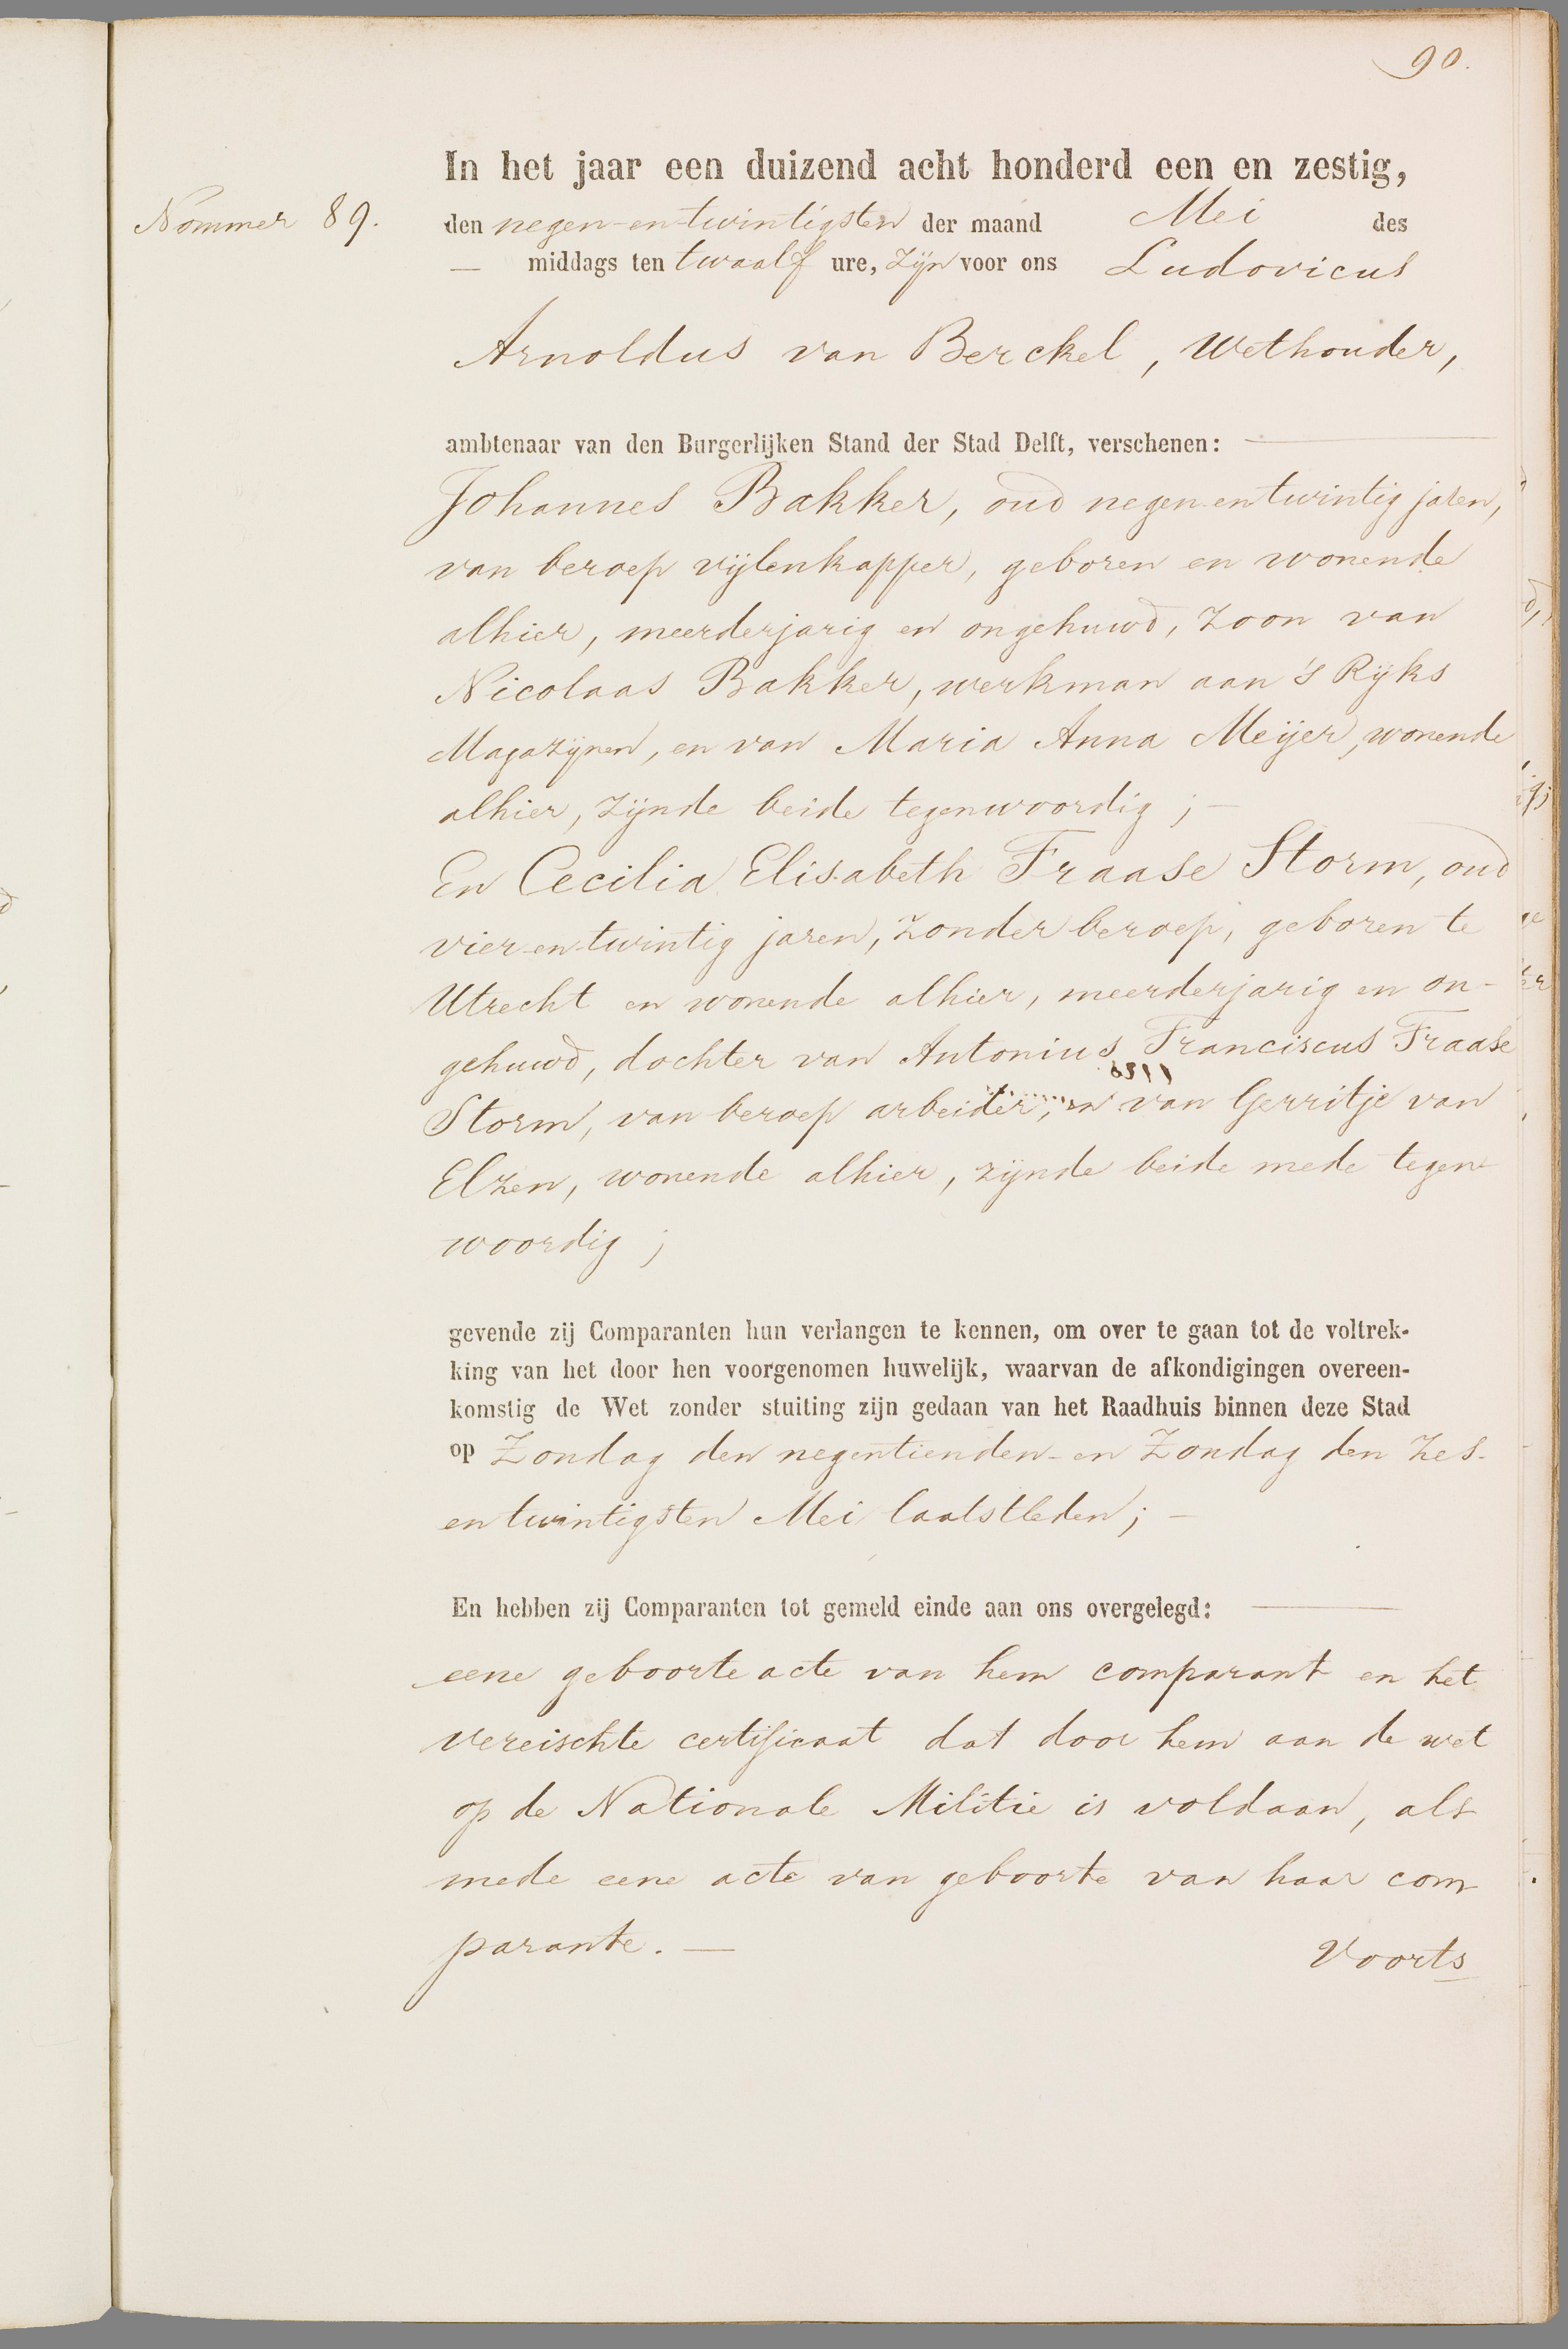 90.
In het jaar een duizend acht honderd een en zestig,
Nommer 89.
den negen-en-twintigsten der maand Mei des
— middags ten twaalf ure, zijn voor ons Ludovicus
Arnoldus van Berckel, Wethouder,
ambtenaar van den Burgerlijken Stand der Stad Delft, verschenen: —
Johannes Bakker, oud negen-en twintig jaren,
van beroep vijlenkapper, geboren en wonende
alhier, meerderjarig en ongehuwd, zoon van
Nicolaas Bakker, werkman aan 's Rijks
Magazijnen, en van Maria Anna Meijer, wonende
alhier, zijnde beide tegenwoordig; —
En Cecilia Elisabeth Fraase Storm, oud
vier-en-twintig jaren, zonder beroep, geboren te
Utrecht en wonende alhier, meerderjarig en on-
gehuwd, dochter van Antonius Franciscus Fraase
Storm, van beroep arbeider, en van Gerritje van
Elzen, wonende alhier, zijnde beide mede tegen-
woordig;
gevende zij Comparanten hun verlangen te kennen, om over te gaan tot de voltrek-
king van het door hen voorgenomen huwelijk, waarvan de afkondigingen overeen-
komstig de Wet zonder stuiting zijn gedaan van het Raadhuis binnen deze Stad
op Zondag den negentienden- en Zondag den zes-
en twintigsten Mei laatstleden; —
En hebben zij Comparanten tot gemeld einde aan ons overgelegd: —
eene geboorte acte van hem comparant en het
vereischte certificaat dat door hem aan de wet
op de Nationale Militie is voldaan, als
mede eene acte van geboorte van haar com-
parante. —
Voorts